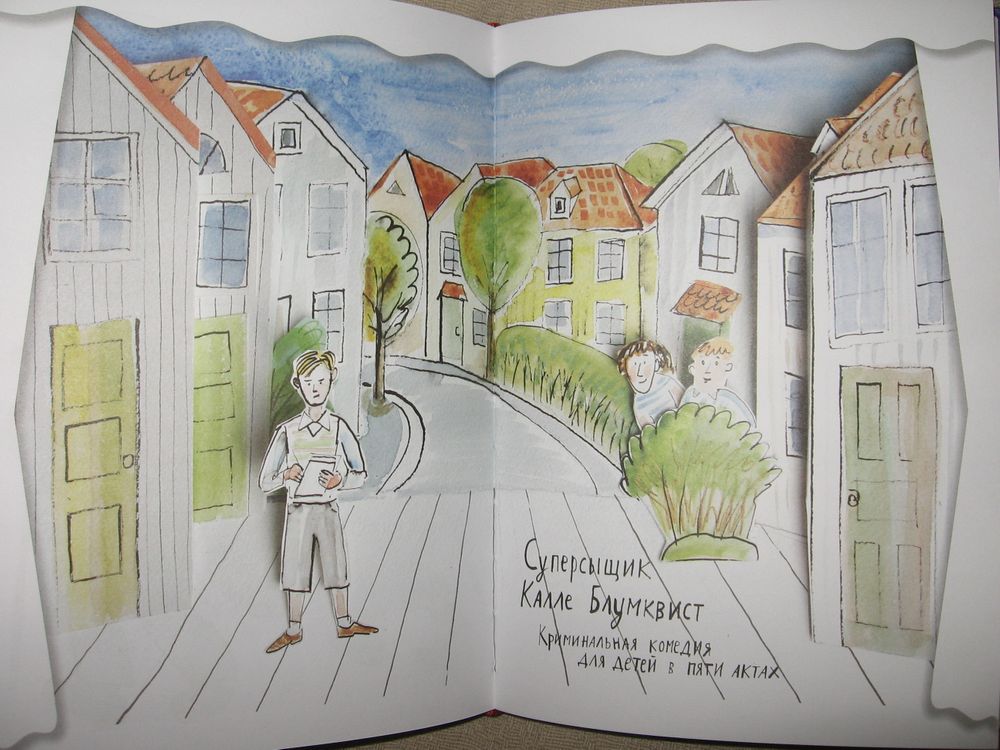 Суперсыщик
Калле Блумквист
Криминальная комедия
для детей в пяти актах